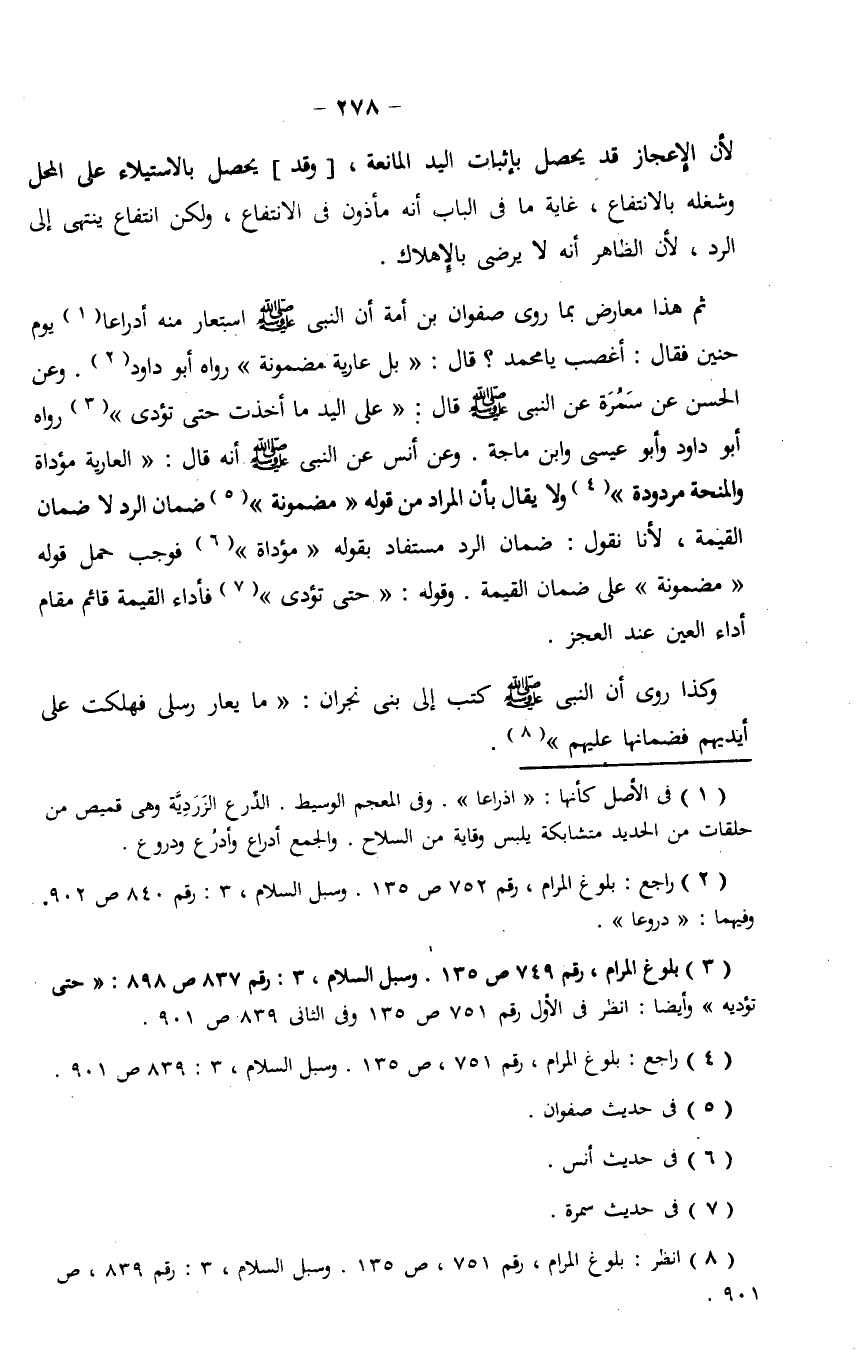 – ٢٧٨ –
لأن الإعجاز قد يحصل بإثبات اليد المانعة ، [ وقد ] يحصل بالاستيلاء على المحل
وشغله بالانتفاع ، غاية ما فى الباب أنه مأذون فى الانتفاع ، ولكن انتفاع ينتهى إلى
الرد ، لأن الظاهر أنه لا يرضى بالإهلاك .
ثم هذا معارض بما روى صفوان بن أمة أن النبى ﷺ استعار منه أدراعا(١) يوم
حنين فقال : أغصب يامحمد ؟ قال : « بل عارية مضمونة » رواه أبو داود(٢) . وعن
الحسن عن سَمُرَة عن النبى ﷺ قال : « على اليد ما أخذت حتى تؤدى »(٣) رواه
أبو داود وأبو عيسى وابن ماجة . وعن أنس عن النبى ﷺ أنه قال : « العارية مؤداة
والمنحة مردودة »(٤) ولا يقال بأن المراد من قوله « مضمونة »(٥) ضمان الرد لا ضمان
القيمة ، لأنا نقول : ضمان الرد مستفاد بقوله « مؤداة »(٦) فوجب حمل قوله
« مضمونة » على ضمان القيمة . وقوله : « حتى تؤدى »(٧) فأداء القيمة قائم مقام
أداء العين عند العجز .
وكذا روى أن النبى ﷺ كتب إلى بنى نجران : « ما يعار رسلى فهلكت على
أيديهم فضمانها عليهم »(٨) .
(١) فى الأصل كأنها : « اذراعا » . وفى المعجم الوسيط . الدِّرع الزَرَدِيَّة وهى قميص من
حلقات من الحديد متشابكة يلبس وقاية من السلاح . والجمع أدراع وأدرُع ودروع .
(٢) راجع : بلوغ المرام ، رقم ٧٥٢ ص ١٣٥ . وسبل السلام ، ٣ : رقم ٨٤٠ ص ٩٠٢.
وفيهما : « دروعا » .
(٣) بلوغ المرام ، رقم ٧٤٩ ص ١٣٥ . وسبل السلام ، ٣ : رقم ٨٣٧ ص ٨٩٨ : « حتى
تؤديه » وأيضا : انظر فى الأول رقم ٧٥١ ص ١٣٥ وفى الثانى ٨٣٩ ص ٩٠١ .
(٤) راجع : بلوغ المرام ، رقم ٧٥١ ، ص ١٣٥ . وسبل السلام ، ٣ : ٨٣٩ ص ٩٠١ .
(٥) فى حديث صفوان .
(٦) فى حديث أنس .
(٧) فى حديث سمرة .
(٨) انظر : بلوغ المرام ، رقم ٧٥١ ، ص ١٣٥ . وسبل السلام ، ٣ : رقم ٨٣٩ ، ص
٩٠١ .